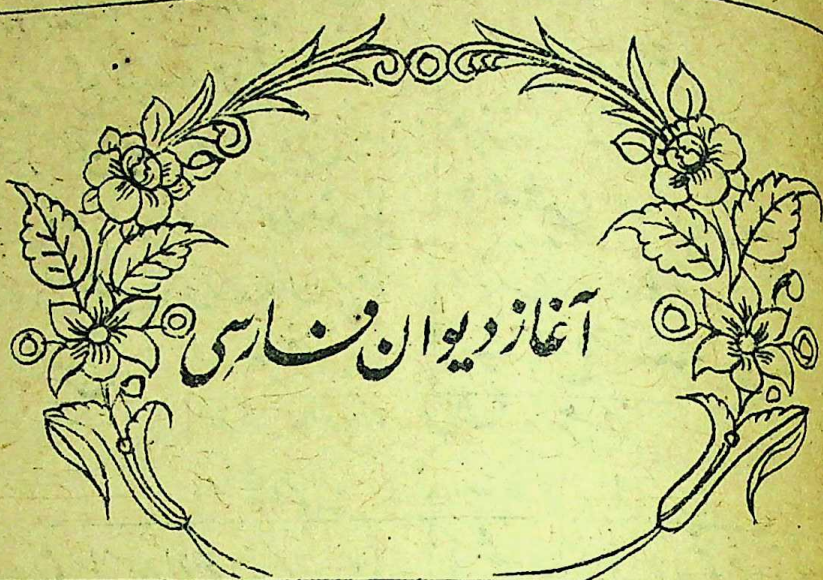 آغاز دیوان فارسی